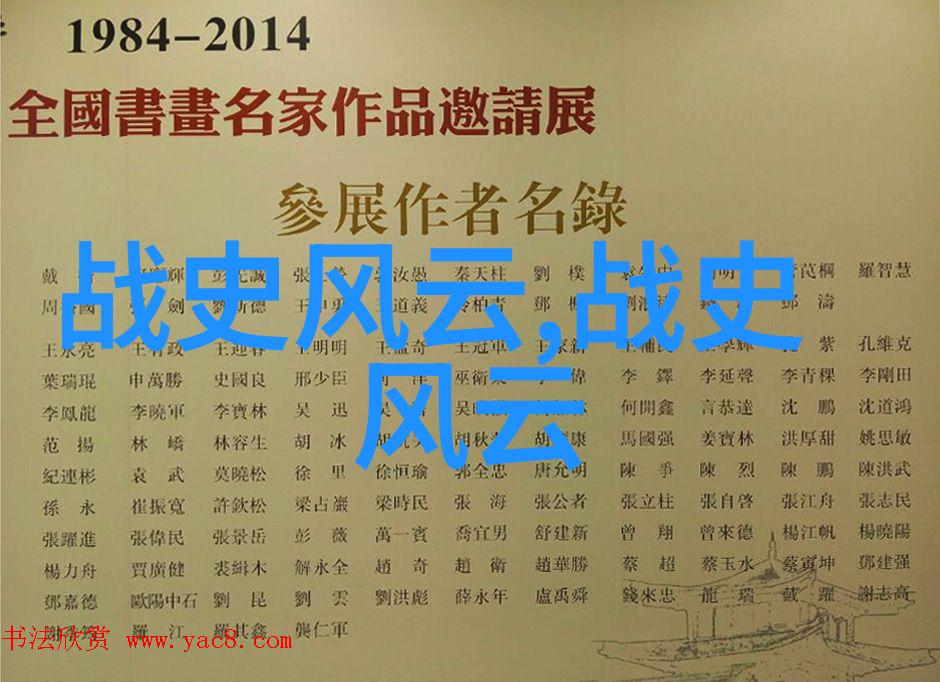 1984-2014
全國書畫名家作品邀請展
參展作者名錄
战史风云,战史
风云
戴 輝 彭光誠 張 汝愚 秦天柱 劉 樸 明 芑桐 羅智慧
周 國 劍 劉新德 王 勇 道義 冷柏青 鄧 鄧 濤
王永亮 王有政 王迎春 王明明 王孟奇 王冠軍 王家新 紫 孔維克
葉瑞琨 申萬勝 史國良 邢少臣 何 洋 巫衛東 李 偉 李 鐸 李延聲 李青稞 李剛田
李鳳龍 李曉軍 李寶林 吳 迅 吳 何開鑫 言恭達 沈 鵬 沈道鴻
范 揚 林 嶠 林容生 胡 冰 胡 胡秋 胡 康 馬國强 姜寶林 洪厚甜 姚思敏
紀連彬 袁 武 莫曉松 徐 里 徐恒瑜 郭全忠 唐允明 陳 爭 陳 烈 陳 鵬 陳洪武
孫 永 崔振寬 許欽松 梁占巖 梁時民 張 海 張公者 張立柱 張自啓 張江舟 張志民
張躍進 張偉民 張景岳 彭 薇 萬一賓 喬宜男 舒建新 曾 翔 曾來德 楊江帆 楊曉陽
楊力舟 賈廣健 裘緝木 解永全 趙 奇 趙 衛 趙華勝 蔡 超 蔡玉水 蔡寅坤 鄧建强
鄧嘉德 歐陽中石 劉 昆 劉 雲 劉洪彪 薛永年 盧禹舜 錢來忠 龍 瑞 戴 躍 謝志高
羅 江 羅其鑫 龔仁軍
书法欣赏 www.yac8.com